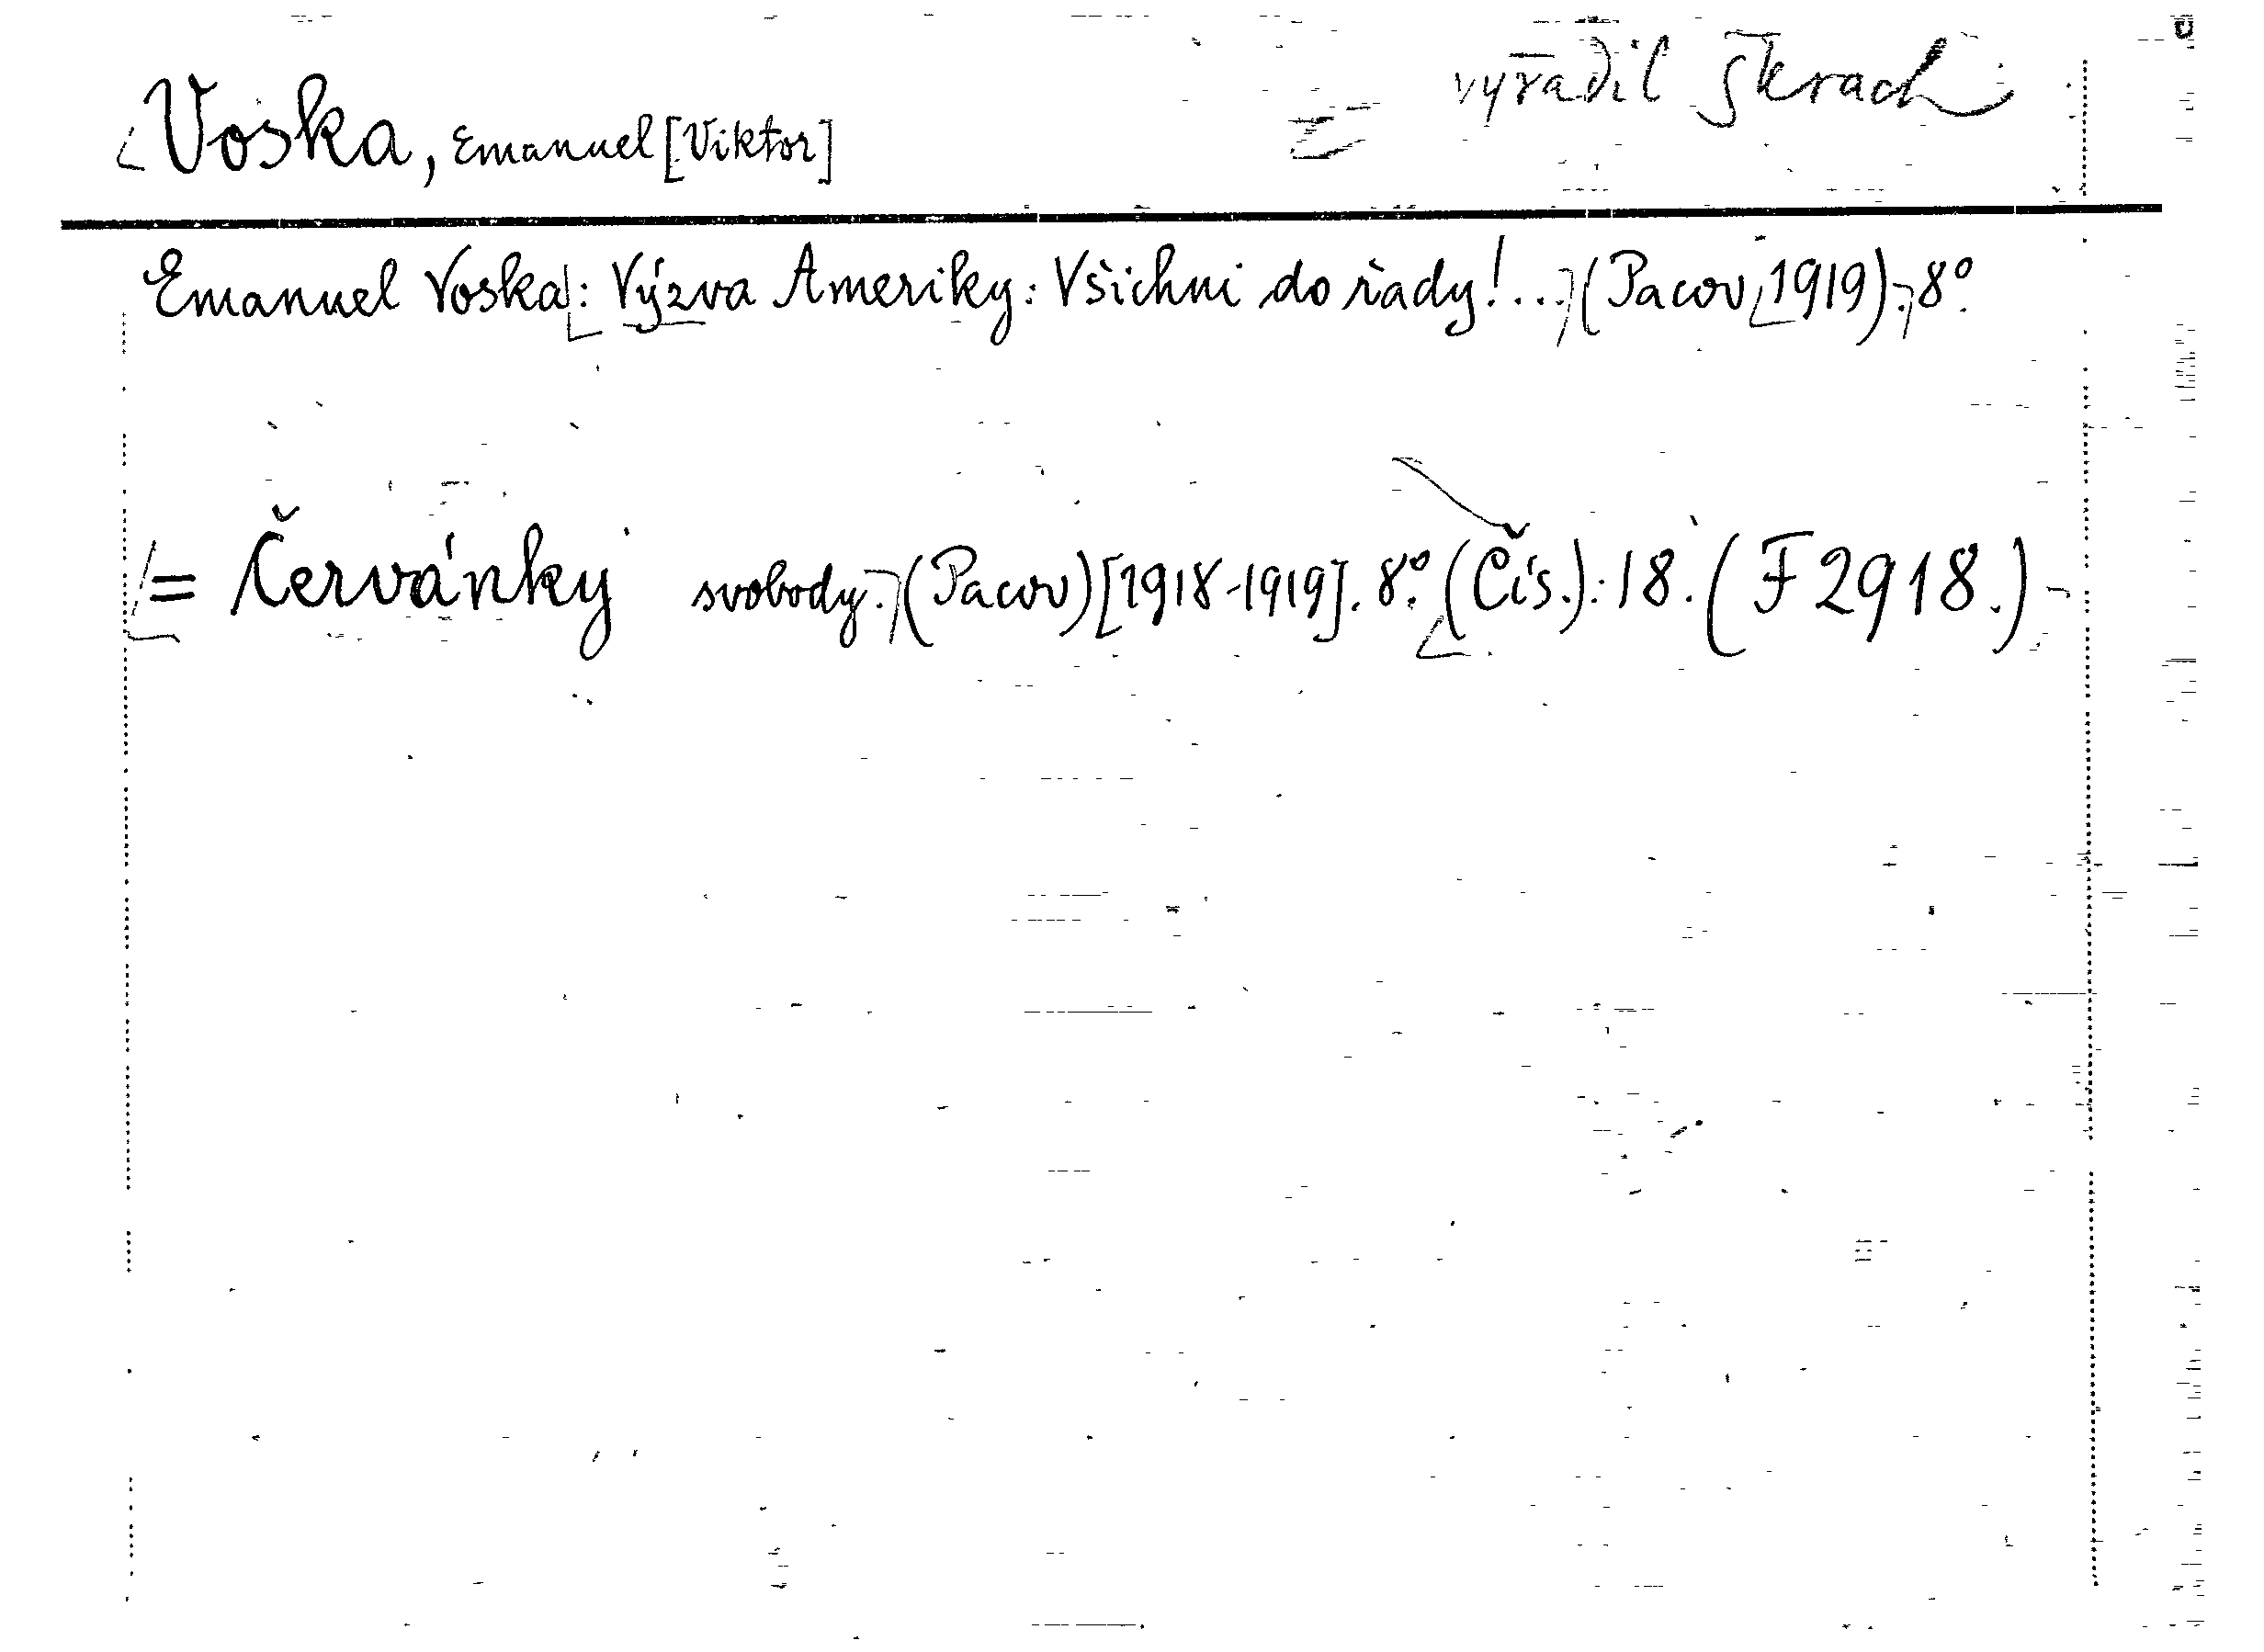 vyřadil Škrach
Voska, Emanuel [Viktor]
Emanuel Voska: Výzva Ameriky: Všichni do řady!... (Pacov, 1919). 8°.
= Červánky svobody. (Pacov) [1918-1919]. 8°. (Čís.): 18. (F 2918.)